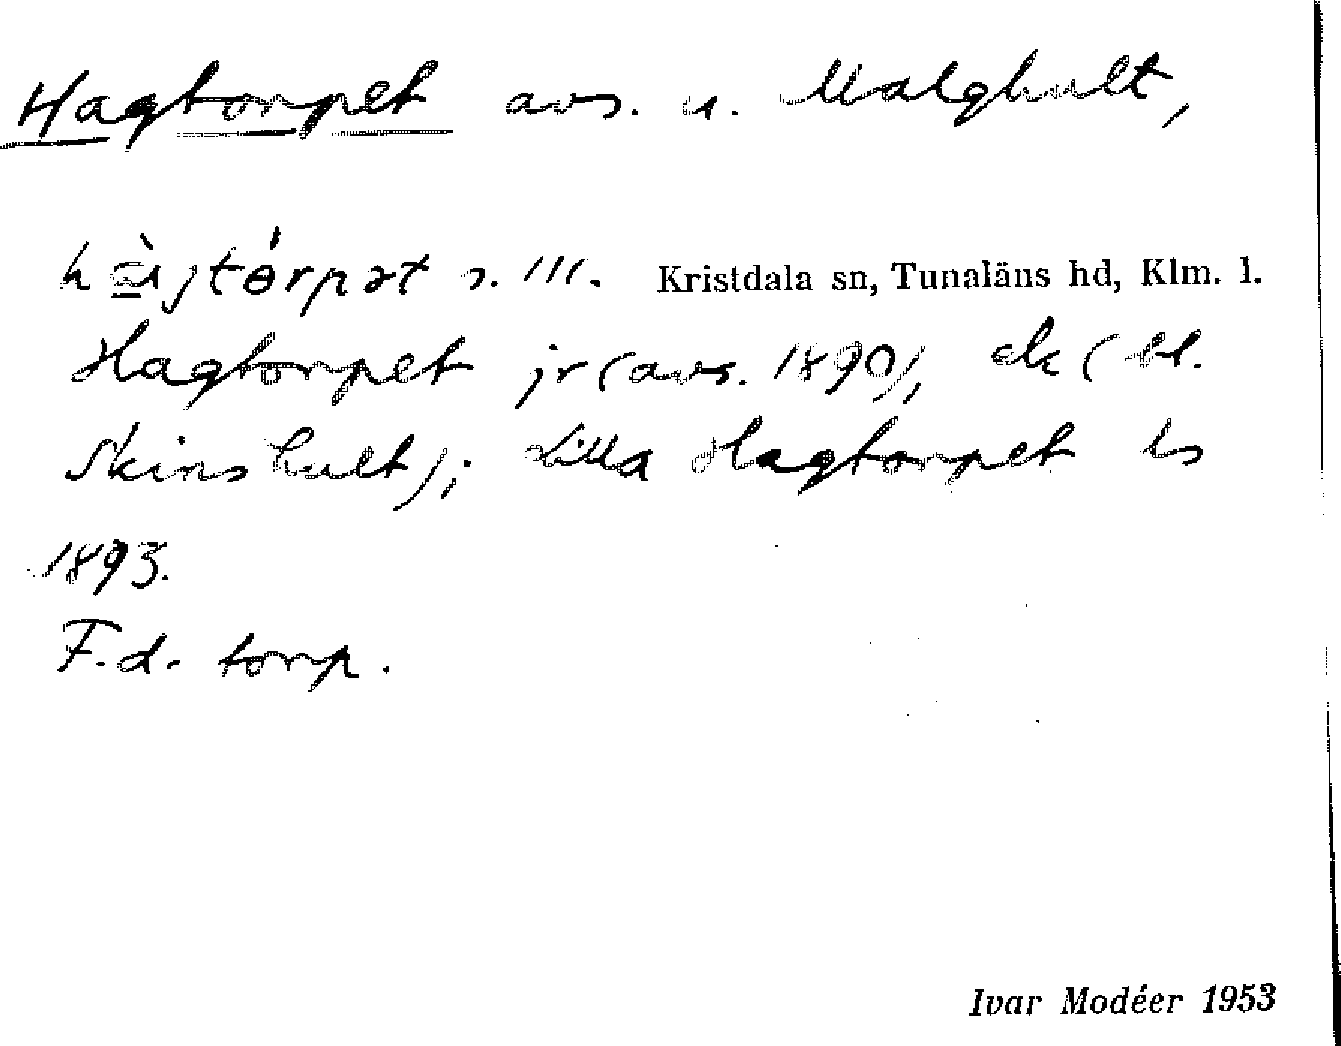 Hagtorpet avs. u. Malghult,
s. III. Kristdala sn, Tunaläns hd, Klm. l.
Hagtorpet jr (avs. 1890), ek (bl.
Skinshult); Lilla Hagtorpet ls
1893.
F.d. torp.
Ivar Modéer 1953